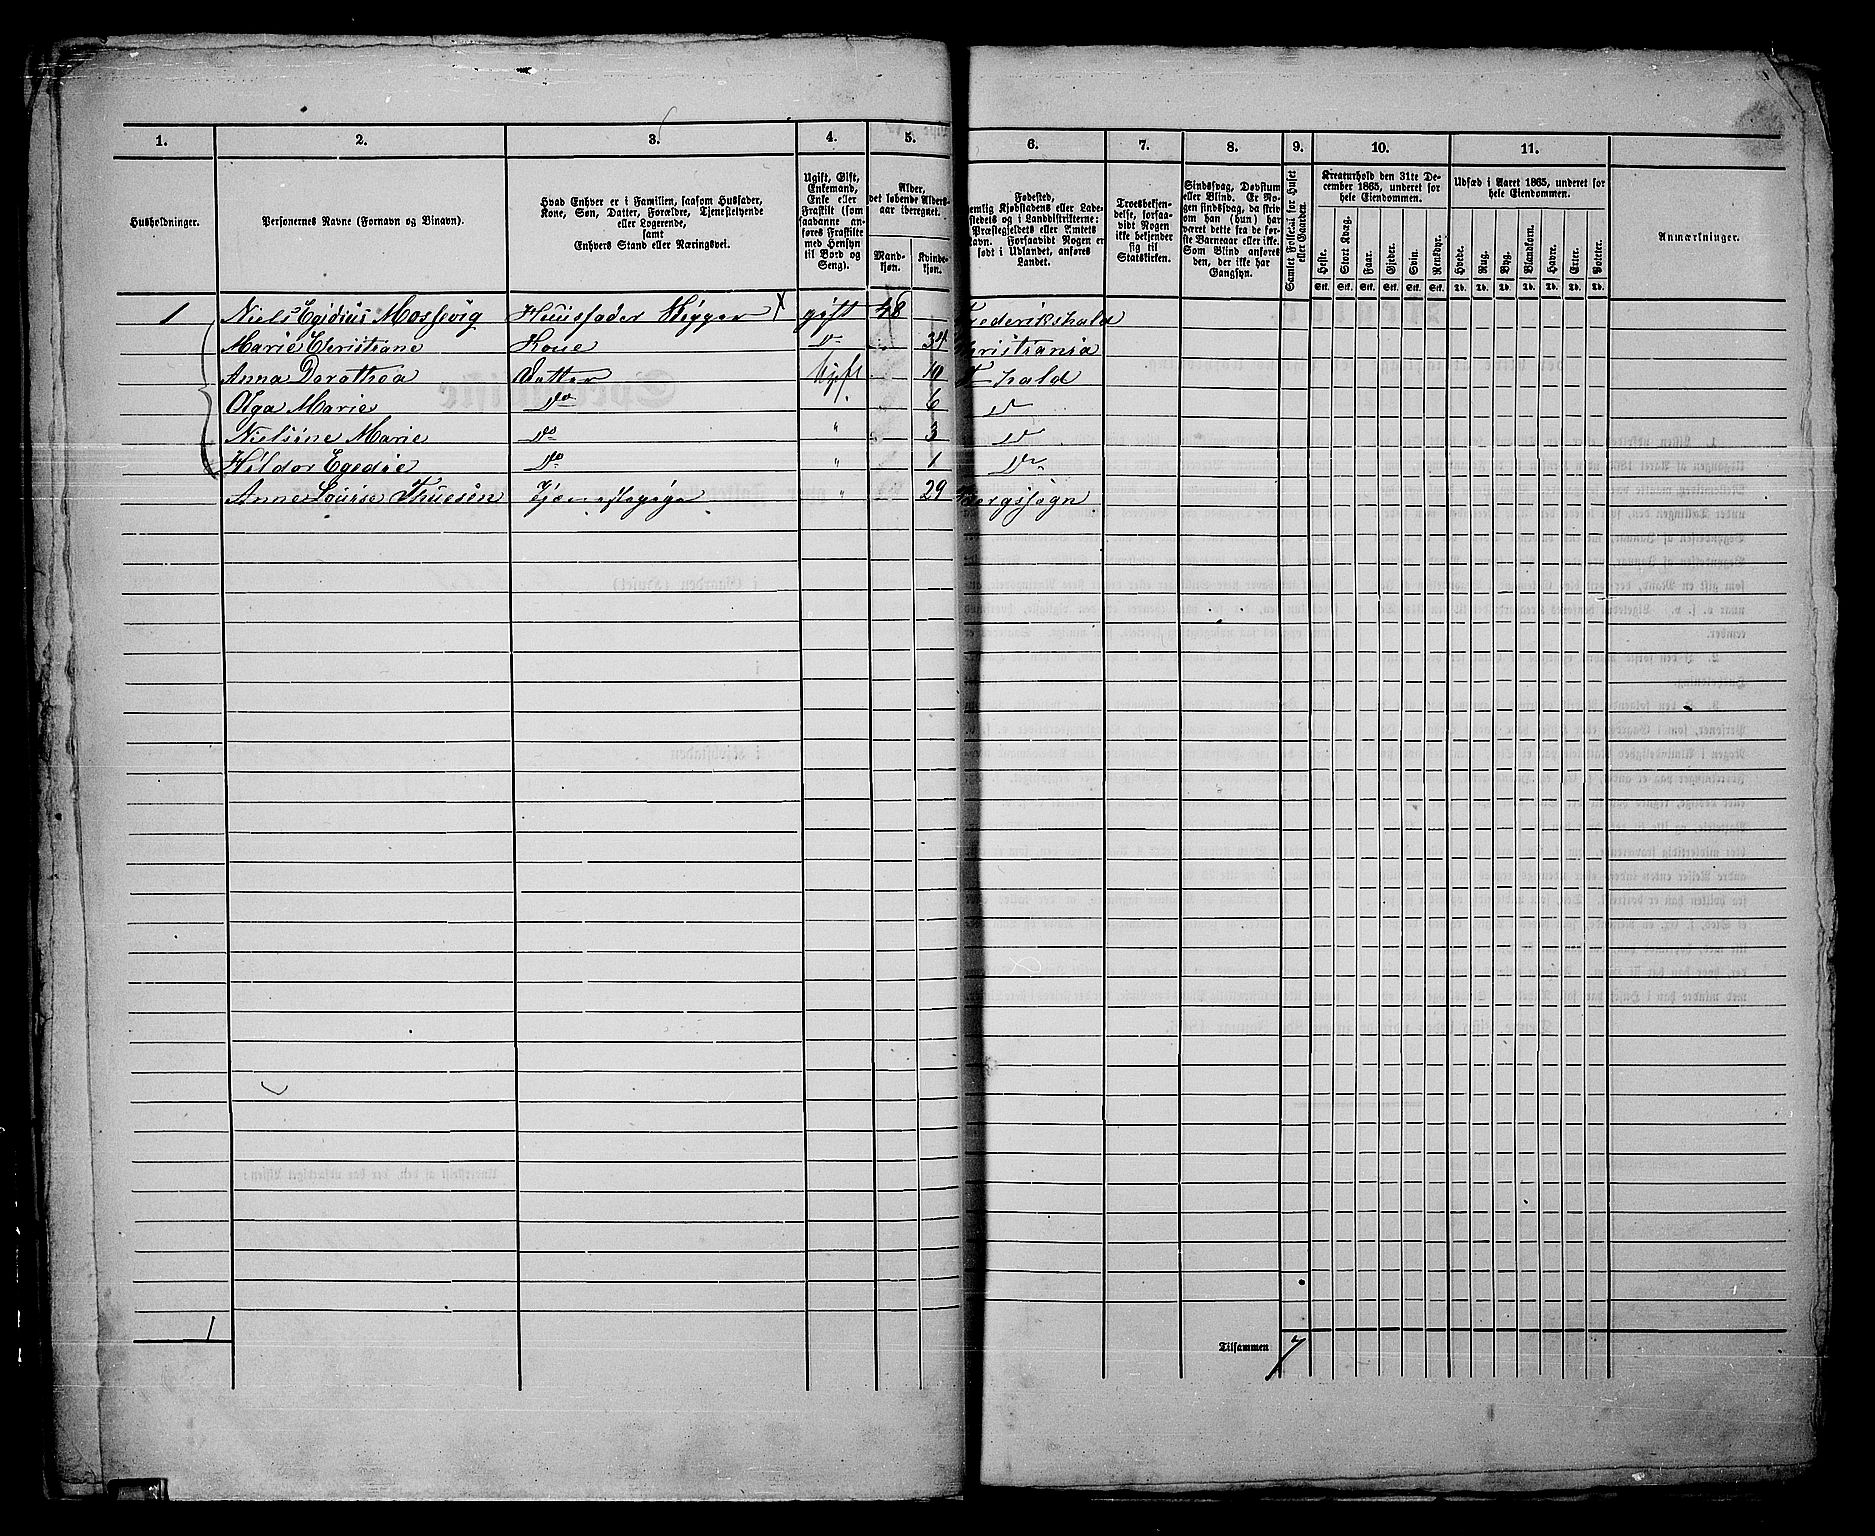 1. 2. 3. 4. 5. 6. 7. 8. 9. 10. 11.
Husholdninger.
Personernes Navne (Fornavn og Tilnavn).
Hvad Enhver er i Familien, saasom Husfader,
Kone, Søn, Datter, Forældre, Tjenestetyende
eller Logerende,
samt
Enhvers Stand eller Næringsvei.
Ugift, Gift,
Enkemand,
Enke eller
Fraskilte (som
saadanne an-
føres Fraskilte
med Hensyn
til Bord og
Seng).
Alder,
det løbende Alders-
aar iberegnet.
Mand-
kjøn.
Kvinde-
kjøn.
Fødested,
nemlig Kjøbstadens eller Lade-
stedets og i Landdistrikterne:
Præstegjeldets eller Amtets
Navn. Forsaavidt Nogen er
født i Udlandet, anføres
Landet.
Troesbekjen-
delse, forsaa-
vidt Nogen
ikke bekjender
sig til
Statskirken.
Sindssvag, Døvstum
eller Blind. Er No-
gen sindssvag, da skriv
om han (hun) har
været dette fra de før-
ste Barneaar eller ikke.
Som Blind anføres
den, der ikke har
Gangsyn.
Samlet Folketal for Huset
eller Gaarden.
Kreaturhold den 31te De-
cember 1865, underet for
hele Eiendommen.
Heste. Stort Kvæg. Faar. Gjeder. Svin. Rensdyr.
Stk. Stk. Stk. Stk. Stk. Stk.
Udsæd i Aaret 1865, underet for
hele Eiendommen.
Hvede. Rug. Byg. Blandkorn. Havre. Erter. Poteter.
Td. Td. Td. Td. Td. Td. Td.
Anmærkninger.
1 Niels Egidius Mossevig Huusfader Rigger X gift 48 Frederikshald
Marie Christiane Kone Do 34 Christiania
Anna Dorothea Datter Ugift 10 Fr hald
Olga Marie Do 6 Do
Nielsine Marie Do " 3 Do
Hildor Egedie Do " 1 Do
Anne Lourise Thuesen Tjenestepige " 29 Bergs sogn
1
Tilsammen 7